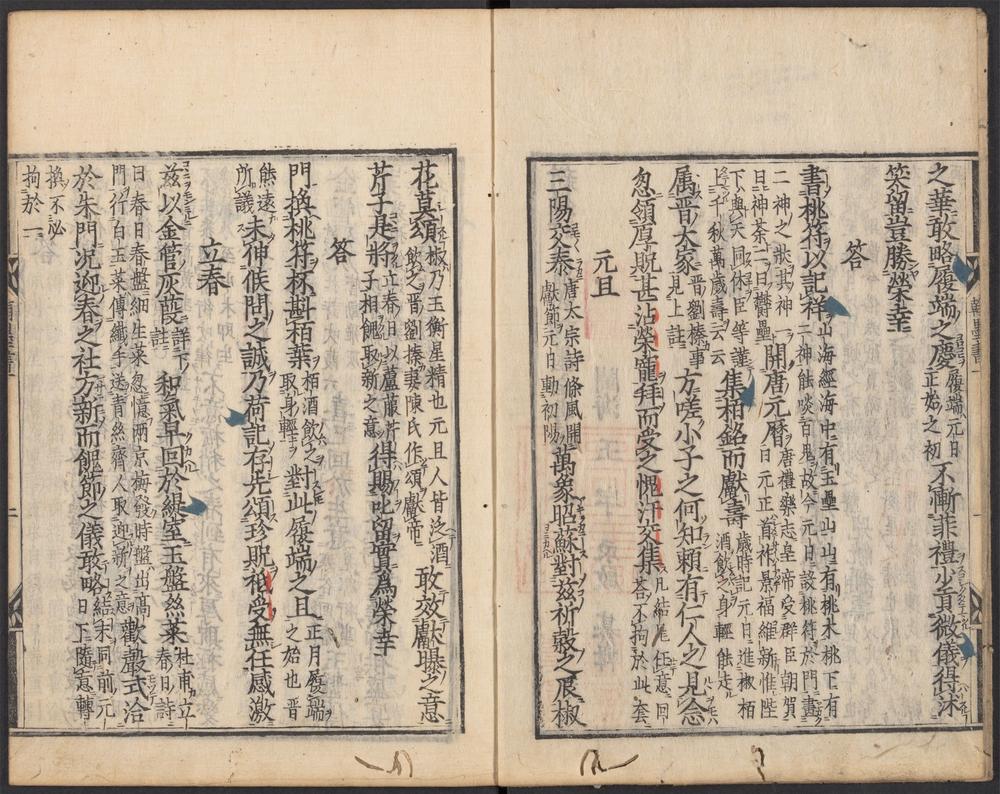 之華敢略履端之慶履端元日正始之初不慚菲禮少貢微儀得沐
笑留豈勝榮幸
答
書桃符以記祥山海經海中有玉壘山山有桃木桃下有二神能啖百鬼故今元日設桃符於門畫
二神之狀其神一曰神荼二曰鬱壘開唐元曆唐禮樂志皇帝受群臣朝賀曰元正首祚景福維新惟陛
下與天同休臣等謹上千秋萬歲壽云云集栢銘而獻壽歲時記元日進椒栢酒飲之身輕能走
属晋大家晋劉榛事見上註方嗟小子之何知賴有仁人之見念
忽領厚貺甚沾榮寵拜而受之愧汗交集凡結尾任意回答不拘於此套
元旦
三陽交泰唐太宗詩條風開獻節元日動初陽萬象昭蘇對茲祈穀之辰椒
花莫頌椒乃玉衡星精也元旦人皆泛酒飲之晋劉榛妻陳氏作頌獻帝敢效獻曝之意
芹子是將立春日以蘆菔芹子相餽取新之意得賜叱留實爲榮幸
答
門換桃符杯斟栢葉栢酒飲之取身輕對此履端之旦正月履端之始也晋
熊遠所議未伸候問之誠乃荷記存先頌珍貺祗受無任感激
立春
茲以金管灰葭詳下註和氣早回於緹室玉盤絲菜杜甫立春日詩
日春日春盤細生菜忽憶兩京梅發時盤出高門行白玉菜傳纖手送青絲齊人取迎新之意歡聲式洽
於朱門況迎春之社方新而餽節之儀敢略結末同前元日下隨意轉
換不必拘於一